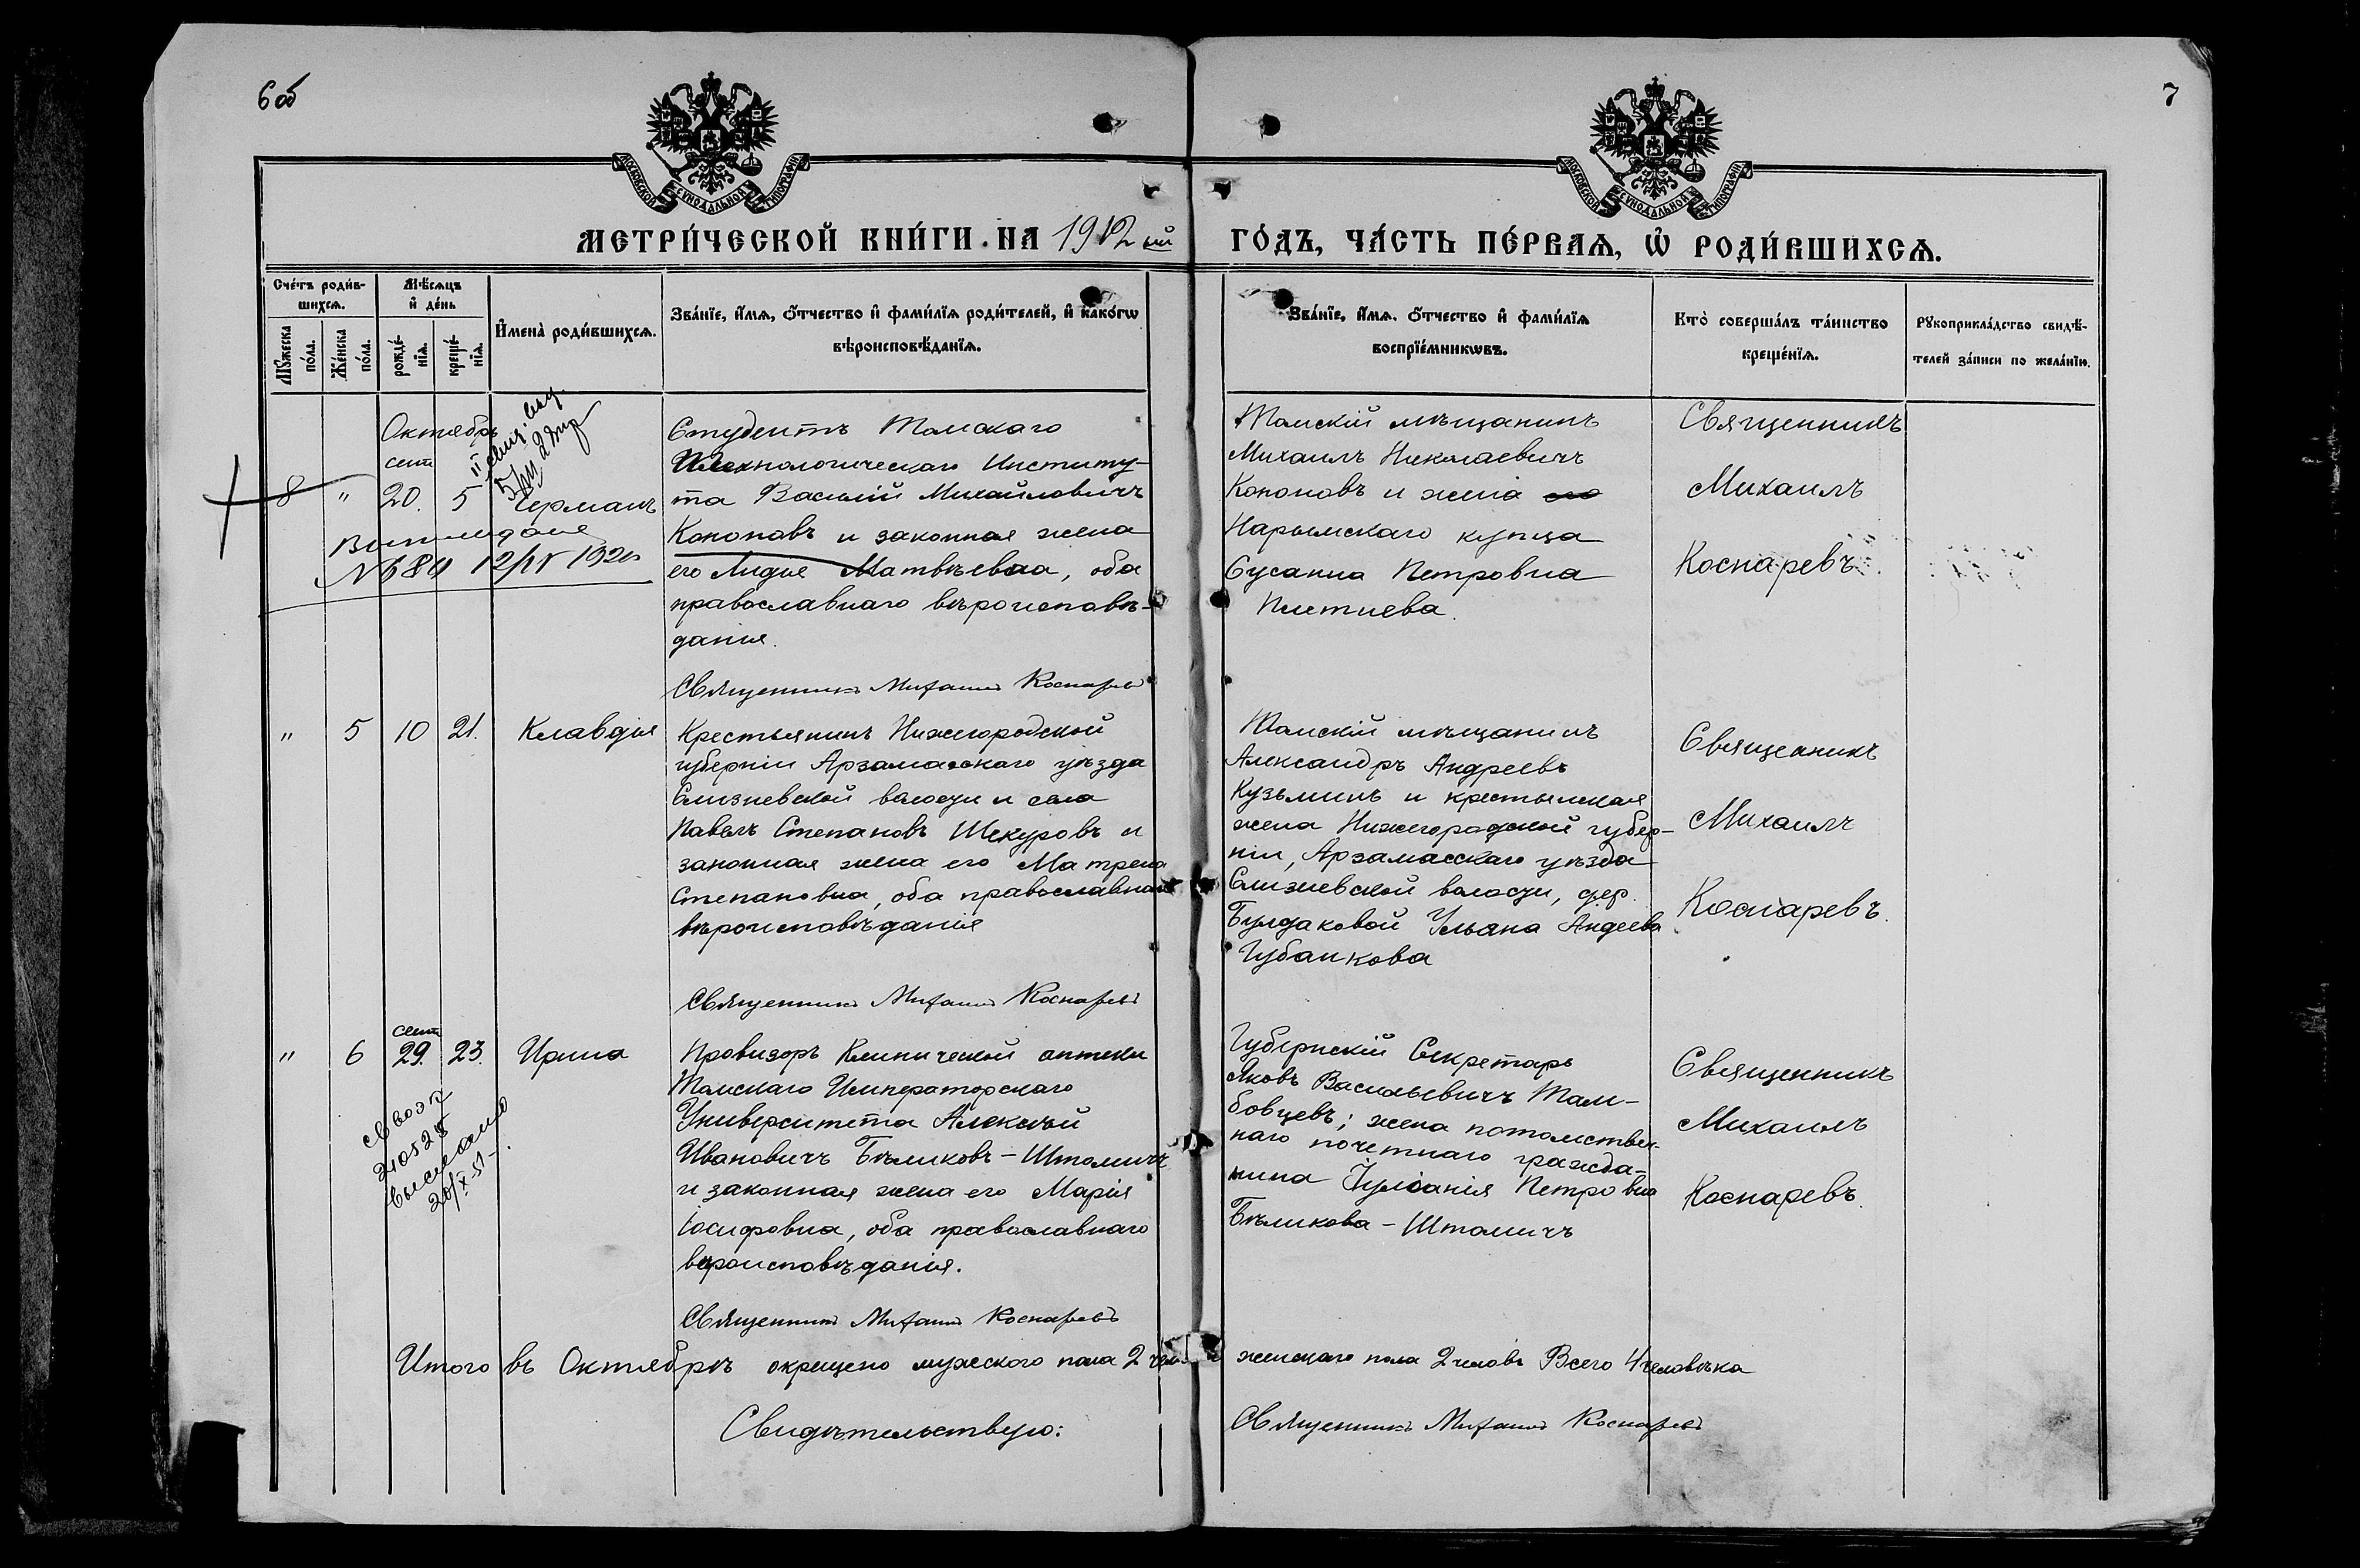 6об
7
МОСКОВСКОЙ СѴНОДАЛЬНОЙ ТИПОГРАФІИ
МОСКОВСКОЙ СѴНОДАЛЬНОЙ ТИПОГРАФІИ
МЕТРИ́ЧЕСКОЙ КНИ́ГИ НА 1912ый ГО́ДЪ, ЧА́СТЬ ПЕ́РВАѦ, Ѡ РОДИ́ВШИХСѦ.
Сче́тъ роди́в-
шихсѧ.
Мꙋ́жеска
по́ла.
Же́нска
по́ла.
Мѣ́сѧцъ
и҆ де́нь
рожде́-
нїѧ.
креще́-
нїѧ.
И҆мена̀ роди́вшихсѧ.
Зва́нїе, и҆́мѧ, ѻ҆́тчество и҆ фами́лїѧ роди́телей, и҆ како́гѡ
вѣроисповѣ́данїѧ.
Зва́нїе, и҆́мѧ, ѻ҆́тчество и҆ фами́лїѧ
воспрїе́мникѡвъ.
Кто̀ соверша́лъ та́инство
креще́нїѧ.
Рꙋкоприкла́дство свидѣ́-
телей за́писи по жела́нїю.
Октябрь
сент
8 " 20. 5 Германъ
12/IV 1920
Студентъ Томскаго
Технологическаго Институ-
та Василій Михайловичъ
Кононовъ и законная жена
его Лидія Матвѣевна, оба
православнаго вѣроисповѣ-
данія.
Священникъ Михаилъ Коснаревъ
Томскій мѣщанинъ
Михаилъ Николаевичъ
Кононовъ и жена его
Нарымскаго купца
Сусанна Петровна
Священникъ
Михаилъ
Коснаревъ.
" 5 10 21. Клавдія
Крестьянинъ Нижегородской
губерніи Арзамасскаго уѣзда
Слизневской волости и села
Павелъ Степановъ Шекуровъ и
законная жена его Матрена
Степановна, оба православнаго
вѣроисповѣданія
Священникъ Михаилъ Коснаревъ
Томскій мѣщанинъ
Александръ Андреевъ
Кузьминъ и крестьянская
жена Нижегородской губер-
ніи, Арзамасскаго уѣзда
Слизневской волости, дер.
Булдаковой Ульяна Андеева
Губанкова
Священникъ
Михаилъ
Коснаревъ.
сент
" 6 29. 23. Ирина
выслано
20/X-51
Провизоръ Клинической аптеки
Томскаго Императорскаго
Университета Алексѣй
Ивановичъ Бѣликовъ-Штомичъ
и законная жена его Марія
Іосифовна, оба православнаго
вѣроисповѣданія.
Священникъ Михаилъ Коснаревъ
Губернскій Секретарь
Яковъ Васильевичъ Там-
бовцевъ; жена потомствен-
наго почетнаго гражда-
нина Іуліанія Петровна
Бѣликова-Штомичъ
Священникъ
Михаилъ
Коснаревъ.
Итого въ Октябрѣ окрещено мужескаго пола 2 чел. женскаго пола 2 человѣ Всего 4 человѣка
Свидѣтельствую: Священникъ Михаилъ Коснаревъ